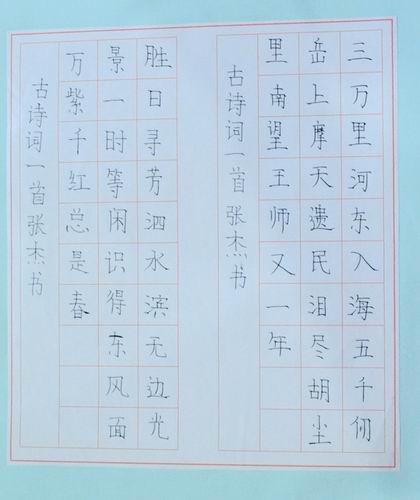 三万里河东入海五千仞
岳上摩天遗民泪尽胡尘
里南望王师又一年
古诗词一首张杰书
胜日寻芳泗水滨无边光
景一时等闲识得东风面
万紫千红总是春
古诗词一首张杰书